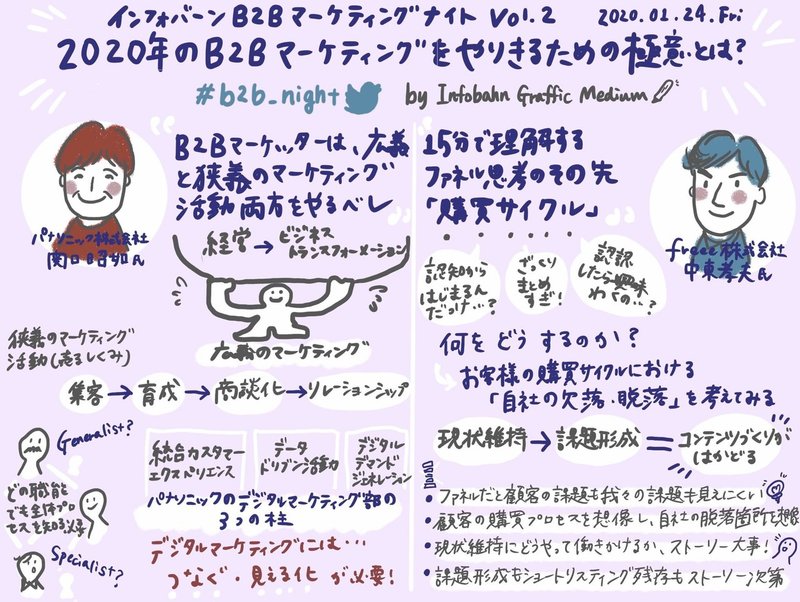 インフォバーンB2Bマーケティングナイト Vol.2 2020.01.24.Fri
2020年のB2Bマーケティングをやりきるための極意とは?
#b2b_night by Infobahn Graffic Medium
B2Bマーケッターは、広義
と狭義のマーケティング
活動両方をやるべし
パナソニック株式会社
関口昭如氏
経営→ビジネス
トランスフォーメーション
広義のマーケティング
狭義のマーケティング
活動(売るしくみ)
集客→育成→商談化→リレーションシップ
Generalist?
どの職能
でも全体プロ
セスを知る必要
Specialist?
統合カスタマー
エクスペリエンス
データ
ドリブン活動
デジタル
デマンド
ジェネレーション
パナソニックのデジタルマーケティング部の
3つの柱
デジタルマーケティングには…
つなぐ・見える化が必要!
15分で理解する
ファネル思考のその先
「購買サイクル」
freee株式会社
中東孝夫氏
認知から
はじまるん
だっけ…?
ざっくり
まとめ
すぎ!
認識
したら興味
わくの…?
何をどうするのか?
お客様の購買サイクルにおける
「自社の欠落・脱落」を考えてみる
現状維持→課題形成=コンテンツづくりが
はかどる
・ファネルだと顧客の課題も我々の課題も見えにくい
・顧客の購買プロセスを想像し、自社の脱落箇所を想像
・現状維持にどうやって働きかけるか、ストーリー大事!
・課題形成もショートリスティング残存もストーリー次第